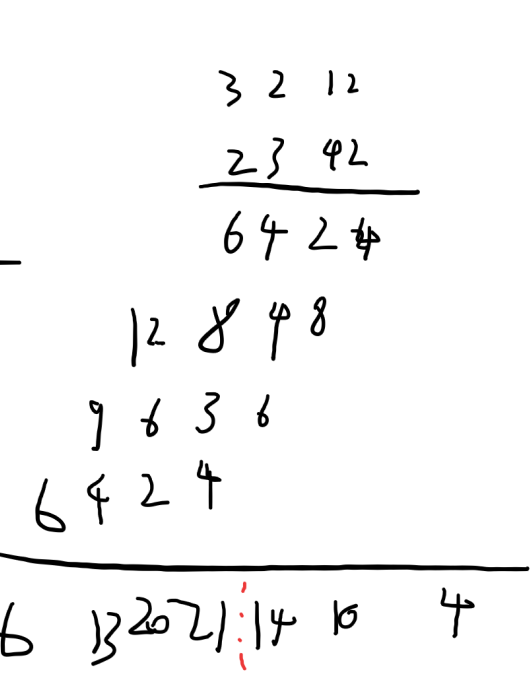 3 2 12
23 42
64 2 4
12 8 4 8
9 6 3 6
6 4 2 4
6 13 20 21 14 10 4